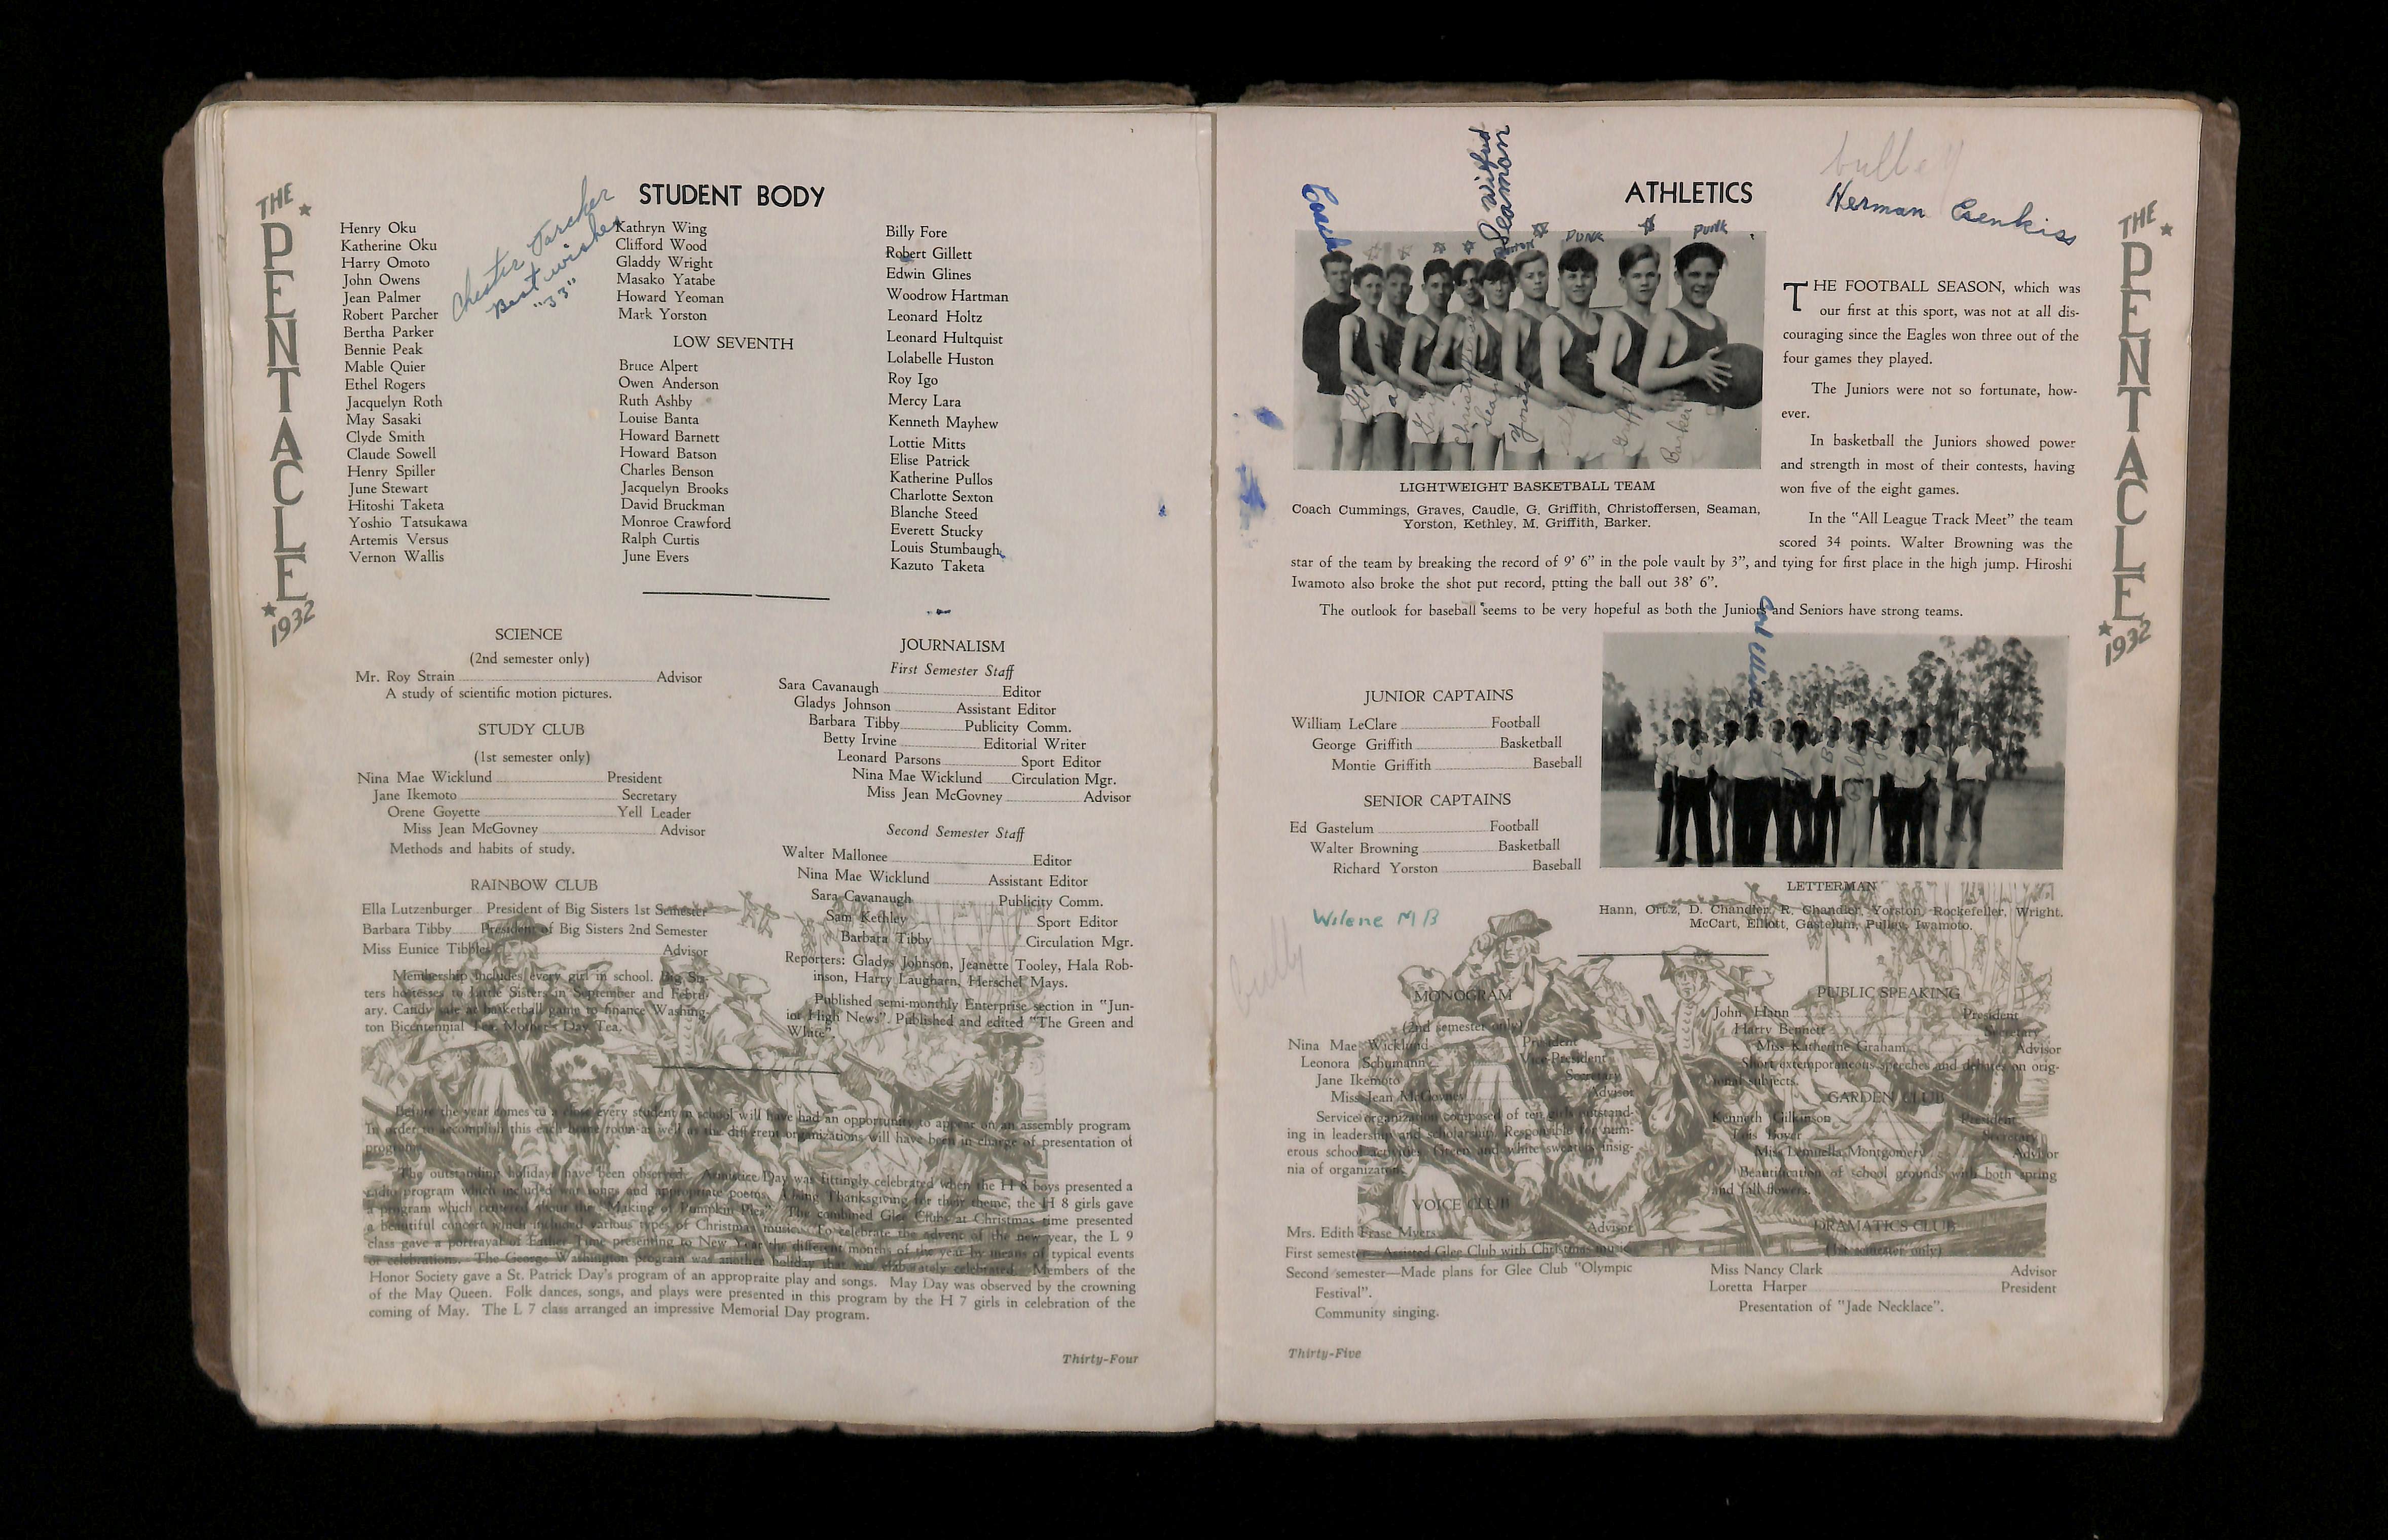 THE PENTACLE 1932
STUDENT BODY
Henry Oku
Katherine Oku
Harry Omoto
John Owens
Jean Palmer
Robert Parcher
Bertha Parker
Bennie Peak
Mable Quier
Ethel Rogers
Jacquelyn Roth
May Sasaki
Clyde Smith
Claude Sowell
Henry Spiller
June Stewart
Hitoshi Taketa
Yoshio Tatsukawa
Artemis Versus
Vernon Wallis
Chester Parcher
Best wishes
"33"
Kathryn Wing
Clifford Wood
Gladdy Wright
Masako Yatabe
Howard Yeoman
Mark Yorston
LOW SEVENTH
Bruce Alpert
Owen Anderson
Ruth Ashby
Louise Banta
Howard Barnett
Howard Batson
Charles Benson
Jacquelyn Brooks
David Bruckman
Monroe Crawford
Ralph Curtis
June Evers
Billy Fore
Robert Gillett
Edwin Glines
Woodrow Hartman
Leonard Holtz
Leonard Hultquist
Lolabelle Huston
Roy Igo
Mercy Lara
Kenneth Mayhew
Lottie Mitts
Elise Patrick
Katherine Pullos
Charlotte Sexton
Blanche Steed
Everett Stucky
Louis Stumbaugh
Kazuto Taketa
SCIENCE
(2nd semester only)
Mr. Roy Strain Advisor
A study of scientific motion pictures.
STUDY CLUB
(1st semester only)
Nina Mae Wicklund President
Jane Ikemoto Secretary
Orene Goyette Yell Leader
Miss Jean McGovney Advisor
Methods and habits of study.
RAINBOW CLUB
Ella Lutzenburger President of Big Sisters 1st Semester
Barbara Tibby President of Big Sisters 2nd Semester
Miss Eunice Tibbles Advisor
Membership includes every girl in school. Big Sis-
ters hostesses to Little Sisters in September and Febru-
ary. Candy sale at basketball game to finance Washing-
ton Bicentennial Tea. Mother's Day Tea.
JOURNALISM
First Semester Staff
Sara Cavanaugh Editor
Gladys Johnson Assistant Editor
Barbara Tibby Publicity Comm.
Betty Irvine Editorial Writer
Leonard Parsons Sport Editor
Nina Mae Wicklund Circulation Mgr.
Miss Jean McGovney Advisor
Second Semester Staff
Walter Mallonee Editor
Nina Mae Wicklund Assistant Editor
Sara Cavanaugh Publicity Comm.
Sam Kethley Sport Editor
Barbara Tibby Circulation Mgr.
Reporters: Gladys Johnson, Jeanette Tooley, Hala Rob-
inson, Harry Laugharn, Herschel Mays.
Published semi-monthly Enterprise section in "Jun-
ior High News". Published and edited "The Green and
White".
Before the year comes to a close every student in school will have had an opportunity to appear on an assembly program
In order to accomplish this each home room as well as the different organizations will have been in charge of presentation of
programs.
The outstanding holidays have been observed. Armistice Day was fittingly celebrated when the H 8 boys presented a
radio program which included war songs and appropriate poems. Using Thanksgiving for their theme, the H 8 girls gave
a program which centered about the "Making of Pumpkin Pies". The combined Glee Clubs at Christmas time presented
a beautiful concert which included various types of Christmas music. To celebrate the advent of the new year, the L 9
class gave a portrayal of Father Time presenting to New Year the different months of the year by means of typical events
or celebrations. The George Washington program was another holiday that was elaborately celebrated. Members of the
Honor Society gave a St. Patrick Day's program of an appropraite play and songs. May Day was observed by the crowning
of the May Queen. Folk dances, songs, and plays were presented in this program by the H 7 girls in celebration of the
coming of May. The L 7 class arranged an impressive Memorial Day program.
Thirty-Four
ATHLETICS
bulley
Herman
Coach
Wilfred Seamon
PUNK
Punk
Yorston
Barker
LIGHTWEIGHT BASKETBALL TEAM
Coach Cummings, Graves, Caudle, G. Griffith, Christoffersen, Seaman,
Yorston, Kethley, M. Griffith, Barker.
THE FOOTBALL SEASON, which was
our first at this sport, was not at all dis-
couraging since the Eagles won three out of the
four games they played.
The Juniors were not so fortunate, how-
ever.
In basketball the Juniors showed power
and strength in most of their contests, having
won five of the eight games.
In the "All League Track Meet" the team
scored 34 points. Walter Browning was the
star of the team by breaking the record of 9' 6" in the pole vault by 3", and tying for first place in the high jump. Hiroshi
Iwamoto also broke the shot put record, ptting the ball out 38' 6".
The outlook for baseball seems to be very hopeful as both the Juniors and Seniors have strong teams.
JUNIOR CAPTAINS
William LeClare Football
George Griffith Basketball
Montie Griffith Baseball
SENIOR CAPTAINS
Ed Gastelum Football
Walter Browning Basketball
Richard Yorston Baseball
Wilene M B
LETTERMAN
Hann, Ortz, D. Chandler, R. Chandler, Yorston, Rockefeller, Wright.
McCart, Elliott, Gastelum, Pulley, Iwamoto.
bully
MONOGRAM
(2nd semester only)
Nina Mae Wicklund President
Leonora Schumann Vice-President
Jane Ikemoto Secretary
Miss Jean McGovney Advisor
Service organization composed of ten girls outstand-
ing in leadership and scholarship. Responsible for num-
erous school activities. Green and white sweaters insig-
nia of organizaton.
VOICE CLUB
Mrs. Edith Erase Myers Advisor
First semester—Assisted Glee Club with Christmas music.
Second semester—Made plans for Glee Club "Olympic
Festival".
Community singing.
PUBLIC SPEAKING
John Hann President
Harry Bennett Secretary
Miss Katherine Graham Advisor
Short extemporaneous speeches and debates on orig-
ional subjects.
GARDEN CLUB
Kenneth Gilkinson President
Lois Boyer Secretary
Miss Lemuella Montgomery Advisor
Beautification of school grounds with both spring
and fall flowers.
DRAMATICS CLUB
(1st semester only)
Miss Nancy Clark Advisor
Loretta Harper President
Presentation of "Jade Necklace".
Thirty-Five
THE PENTACLE 1932